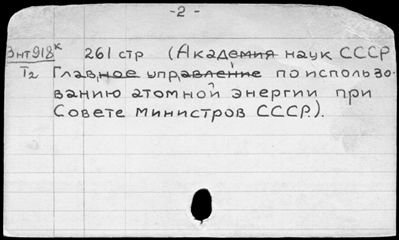 -2-
Знт918к 261 стр (Академия наук СССР
Т2 Главное управление по использо-
ванию атомной энергии при
Совете министров СССР.).